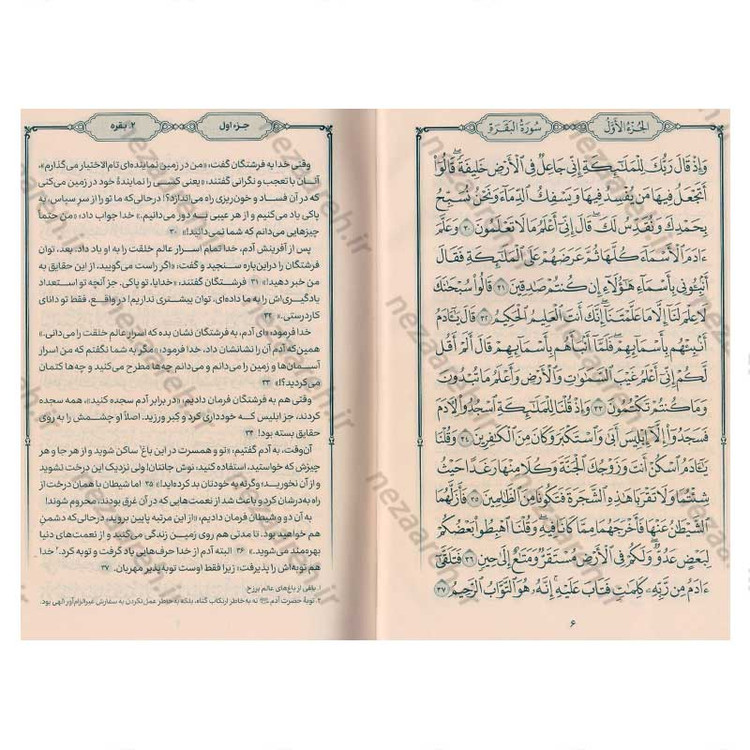 الجزء الأول
سورة البقرة
وَإِذْ قَالَ رَبُّكَ لِلْمَلَٰٓئِكَةِ إِنِّي جَاعِلٌ فِي ٱلْأَرْضِ خَلِيفَةً ۖ قَالُوٓاْ
أَتَجْعَلُ فِيهَا مَن يُفْسِدُ فِيهَا وَيَسْفِكُ ٱلدِّمَآءَ وَنَحْنُ نُسَبِّحُ
بِحَمْدِكَ وَنُقَدِّسُ لَكَ ۖ قَالَ إِنِّيٓ أَعْلَمُ مَا لَا تَعْلَمُونَ ۳۰ وَعَلَّمَ
ءَادَمَ ٱلْأَسْمَآءَ كُلَّهَا ثُمَّ عَرَضَهُمْ عَلَى ٱلْمَلَٰٓئِكَةِ فَقَالَ
أَنۢبِـُٔونِي بِأَسْمَآءِ هَٰٓؤُلَآءِ إِن كُنتُمْ صَٰدِقِينَ ۳۱ قَالُواْ سُبْحَٰنَكَ
لَا عِلْمَ لَنَآ إِلَّا مَا عَلَّمْتَنَآ ۖ إِنَّكَ أَنتَ ٱلْعَلِيمُ ٱلْحَكِيمُ ۳۲ قَالَ يَٰٓـَٔادَمُ
أَنۢبِئْهُم بِأَسْمَآئِهِمْ ۖ فَلَمَّآ أَنۢبَأَهُم بِأَسْمَآئِهِمْ قَالَ أَلَمْ أَقُل
لَّكُمْ إِنِّيٓ أَعْلَمُ غَيْبَ ٱلسَّمَٰوَٰتِ وَٱلْأَرْضِ وَأَعْلَمُ مَا تُبْدُونَ
وَمَا كُنتُمْ تَكْتُمُونَ ۳۳ وَإِذْ قُلْنَا لِلْمَلَٰٓئِكَةِ ٱسْجُدُواْ لِأٓدَمَ
فَسَجَدُوٓاْ إِلَّآ إِبْلِيسَ أَبَىٰ وَٱسْتَكْبَرَ وَكَانَ مِنَ ٱلْكَٰفِرِينَ ۳۴ وَقُلْنَا
يَٰٓـَٔادَمُ ٱسْكُنْ أَنتَ وَزَوْجُكَ ٱلْجَنَّةَ وَكُلَا مِنْهَا رَغَدًا حَيْثُ
شِئْتُمَا وَلَا تَقْرَبَا هَٰذِهِ ٱلشَّجَرَةَ فَتَكُونَا مِنَ ٱلظَّٰلِمِينَ ۳۵ فَأَزَلَّهُمَا
ٱلشَّيْطَٰنُ عَنْهَا فَأَخْرَجَهُمَا مِمَّا كَانَا فِيهِ ۖ وَقُلْنَا ٱهْبِطُواْ بَعْضُكُمْ
لِبَعْضٍ عَدُوٌّ ۖ وَلَكُمْ فِي ٱلْأَرْضِ مُسْتَقَرٌّ وَمَتَٰعٌ إِلَىٰ حِينٍ ۳۶ فَتَلَقَّىٰٓ
ءَادَمُ مِن رَّبِّهِۦ كَلِمَٰتٍ فَتَابَ عَلَيْهِ ۚ إِنَّهُۥ هُوَ ٱلتَّوَّابُ ٱلرَّحِيمُ ۳۷
۶
جزء اول
۲. بقره
وقتی خدا به فرشتگان گفت: «من در زمین نماینده‌ای تام‌الاختیار می‌گذارم»،
آنان با تعجب و نگرانی گفتند: «یعنی کسی را نمایندهٔ خود در زمین می‌کنی
که در آن فساد و خون‌ریزی راه می‌اندازد؟! درحالی‌که ما تو را از سرِ سپاس، به
پاکی یاد می‌کنیم و از هر عیبی به دور می‌دانیم.» خدا جواب داد: «من حتماً
چیزهایی می‌دانم که شما نمی‌دانید!» ۳۰
پس از آفرینش آدم، خدا تمام اسرار عالم خلقت را به او یاد داد. بعد، توان
فرشتگان را دراین‌باره سنجید و گفت: «اگر راست می‌گویید، از این حقایق به
من خبر دهید!» ۳۱ فرشتگان گفتند: «خدایا، تو پاکی. جز آنچه تو استعداد
یادگیری‌اش را به ما داده‌ای، توان بیشتری نداریم! در واقع، فقط تو دانای
کاردرستی.» ۳۲
خدا فرمود: «ای آدم، به فرشتگان نشان بده که اسرار عالم خلقت را می‌دانی.»
همین‌که آدم آن را نشانشان داد، خدا فرمود: «مگر به شما نگفتم که من اسرار
آسمان‌ها و زمین را می‌دانم و می‌دانم چه‌ها مطرح می‌کنید و چه‌ها کتمان
می‌کردید؟!» ۳۳
وقتی هم به فرشتگان فرمان دادیم: «در برابر آدم سجده کنید»، همه سجده
کردند، جز ابلیس که خودداری کرد و کِبر ورزید. اصلاً او چشمش را به روی
حقایق بسته بود! ۳۴
آن‌وقت، به آدم گفتیم: «تو و همسرت در این باغ ساکن شوید و از هر جا و هر
چیزش که خواستید، استفاده کنید، نوش جانتان! ولی نزدیک این درخت نشوید
و از آن نخورید؛ وگرنه به خودتان بد کرده‌اید!» ۳۵ اما شیطان با همان درخت از
راه به‌درشان کرد و باعث شد از نعمت‌هایی که در آن غرق بودند، محروم شوند!
به آن دو و شیطان فرمان دادیم: «از این مرتبه پایین بروید، درحالی‌که دشمنِ
هم خواهید بود. تا مدتی هم روی زمین زندگی می‌کنید و از نعمت‌های دنیا
بهره‌مند می‌شوید.» ۳۶ البته آدم از خدا حرف‌هایی یاد گرفت و توبه کرد.۲ خدا
هم توبه‌اش را پذیرفت؛ زیرا فقط اوست توبه‌پذیر مهربان. ۳۷
۱. باغی از باغ‌های عالم برزخ.
۲. توبهٔ حضرت آدم نه به‌خاطر ارتکاب گناه، بلکه به‌خاطر عمل‌نکردن به سفارش غیرالزام‌آور الهی بود.
nezaareh.ir